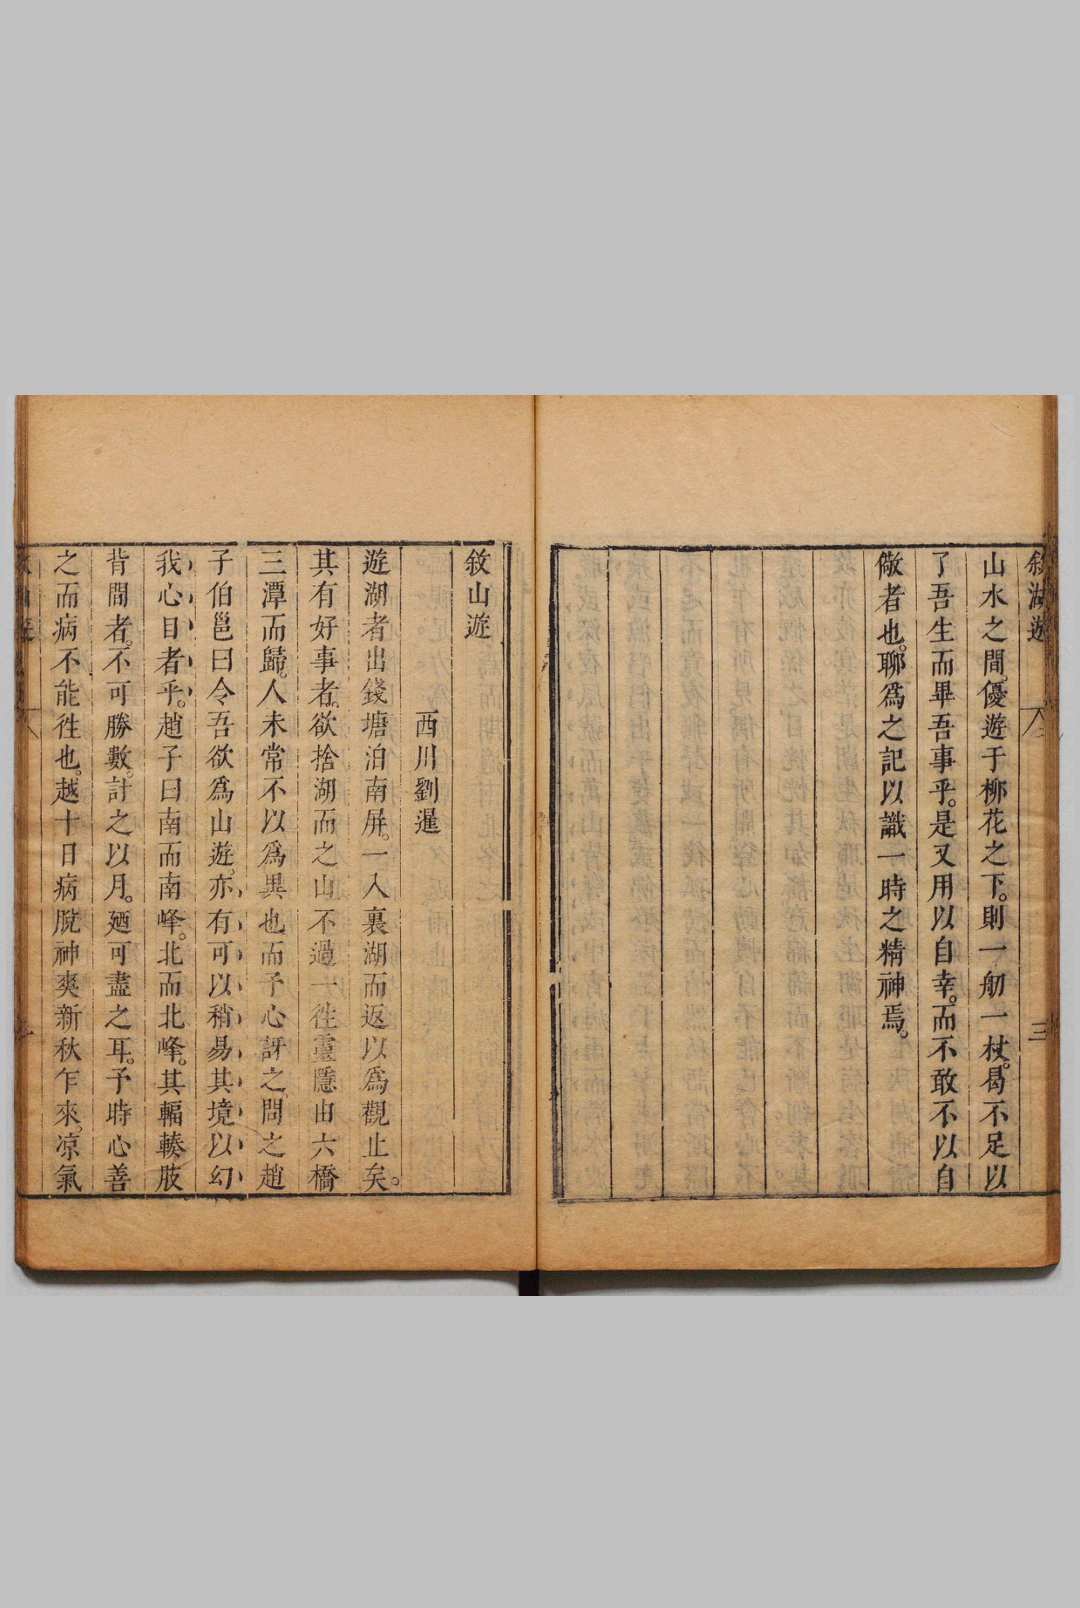 敘湖遊
三
山水之間。優遊于柳花之下。則一舠一杖。曷不足以
了吾生而畢吾事乎。是又用以自幸。而不敢不以自
儆者也。聊爲之記以識一時之精神焉。
敘山遊
西川劉暹
遊湖者出錢塘泊南屏。一入裏湖而返以爲觀止矣。
其有好事者。欲捨湖而之山不過一徃靈隱由六橋
三潭而歸。人未常不以爲異也而予心訝之問之趙
子伯邕曰令吾欲爲山遊。亦有可以稍易其境以幻
我心目者乎。趙子曰南而南峰。北而北峰。其輻輳肢
背間者。不可勝數。計之以月。廼可盡之耳。予時心善
之而病不能徃也。越十日病脫神爽新秋乍來。凉氣